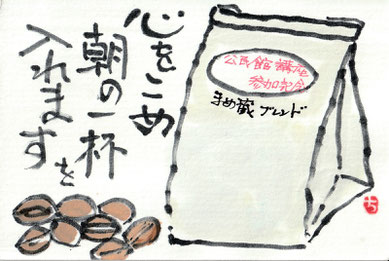 心をこめ
朝の一杯を
入れます
公民館講座
参加記念
まめ蔵ブレンド
ち